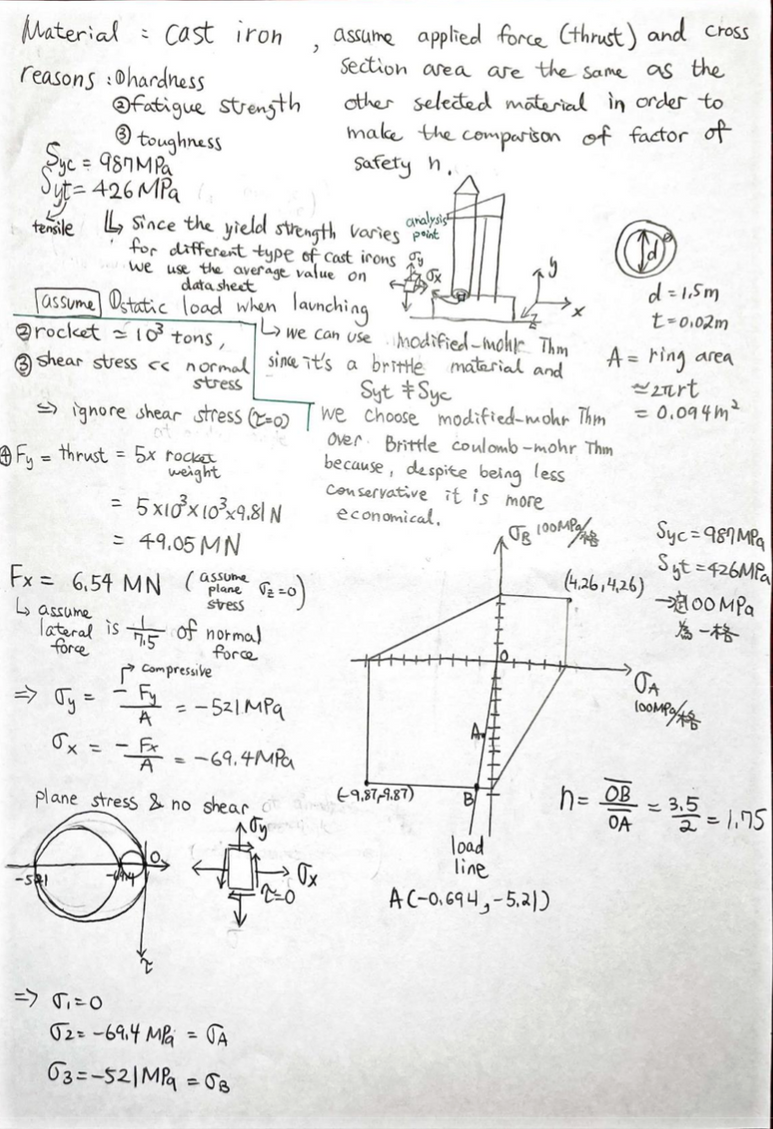 Material = cast iron , assume applied force (thrust) and cross
section area are the same as the
other selected material in order to
make the comparison of factor of
safety n.
reasons : ①hardness
②fatigue strength
③ toughness
Syc = 987MPa
Syt = 426 MPa
tensile
↳ Since the yield strength varies
for different type of cast irons
we use the average value on
datasheet
analysis
point
σy
σx
y
x
z
d
d = 1.5m
t = 0.02m
A = ring area
≃ 2πrt
= 0.094m²
assume ①static load when launching
②rocket ≃ 10³ tons,
③ shear stress << normal
stress
⇒ ignore shear stress (τ=0)
↳ we can use modified-mohr Thm
since it's a brittle material and
Syt ≠ Syc
we choose modified-mohr Thm
over Brittle coulomb-mohr Thm
because, despite being less
conservative it is more
economical.
④ Fy = thrust = 5x rocket
weight
= 5×10³×10³×9.81 N
= 49.05 MN
Fx = 6.54 MN (assume
plane
stress σz=0)
↳ assume
lateral
force is 1/7.5 of normal
force
compressive
⇒ σy = -Fy/A = -521 MPa
σx = -Fx/A = -69.4MPa
plane stress & no shear
-521
-69.4
0
τ
σy
σx
τ=0
⇒ σ1=0
σ2 = -69.4 MPa = σA
σ3 = -521 MPa = σB
σB 100MPa/格
(4.26, 4.26)
0
σA
100MPa/格
A
B
(-9.87,-9.87)
load
line
A(-0.694, -5.21)
Syc = 987MPa
Syt = 426MPa
100MPa
為一格
n = OB/OA = 3.5/2 = 1.75